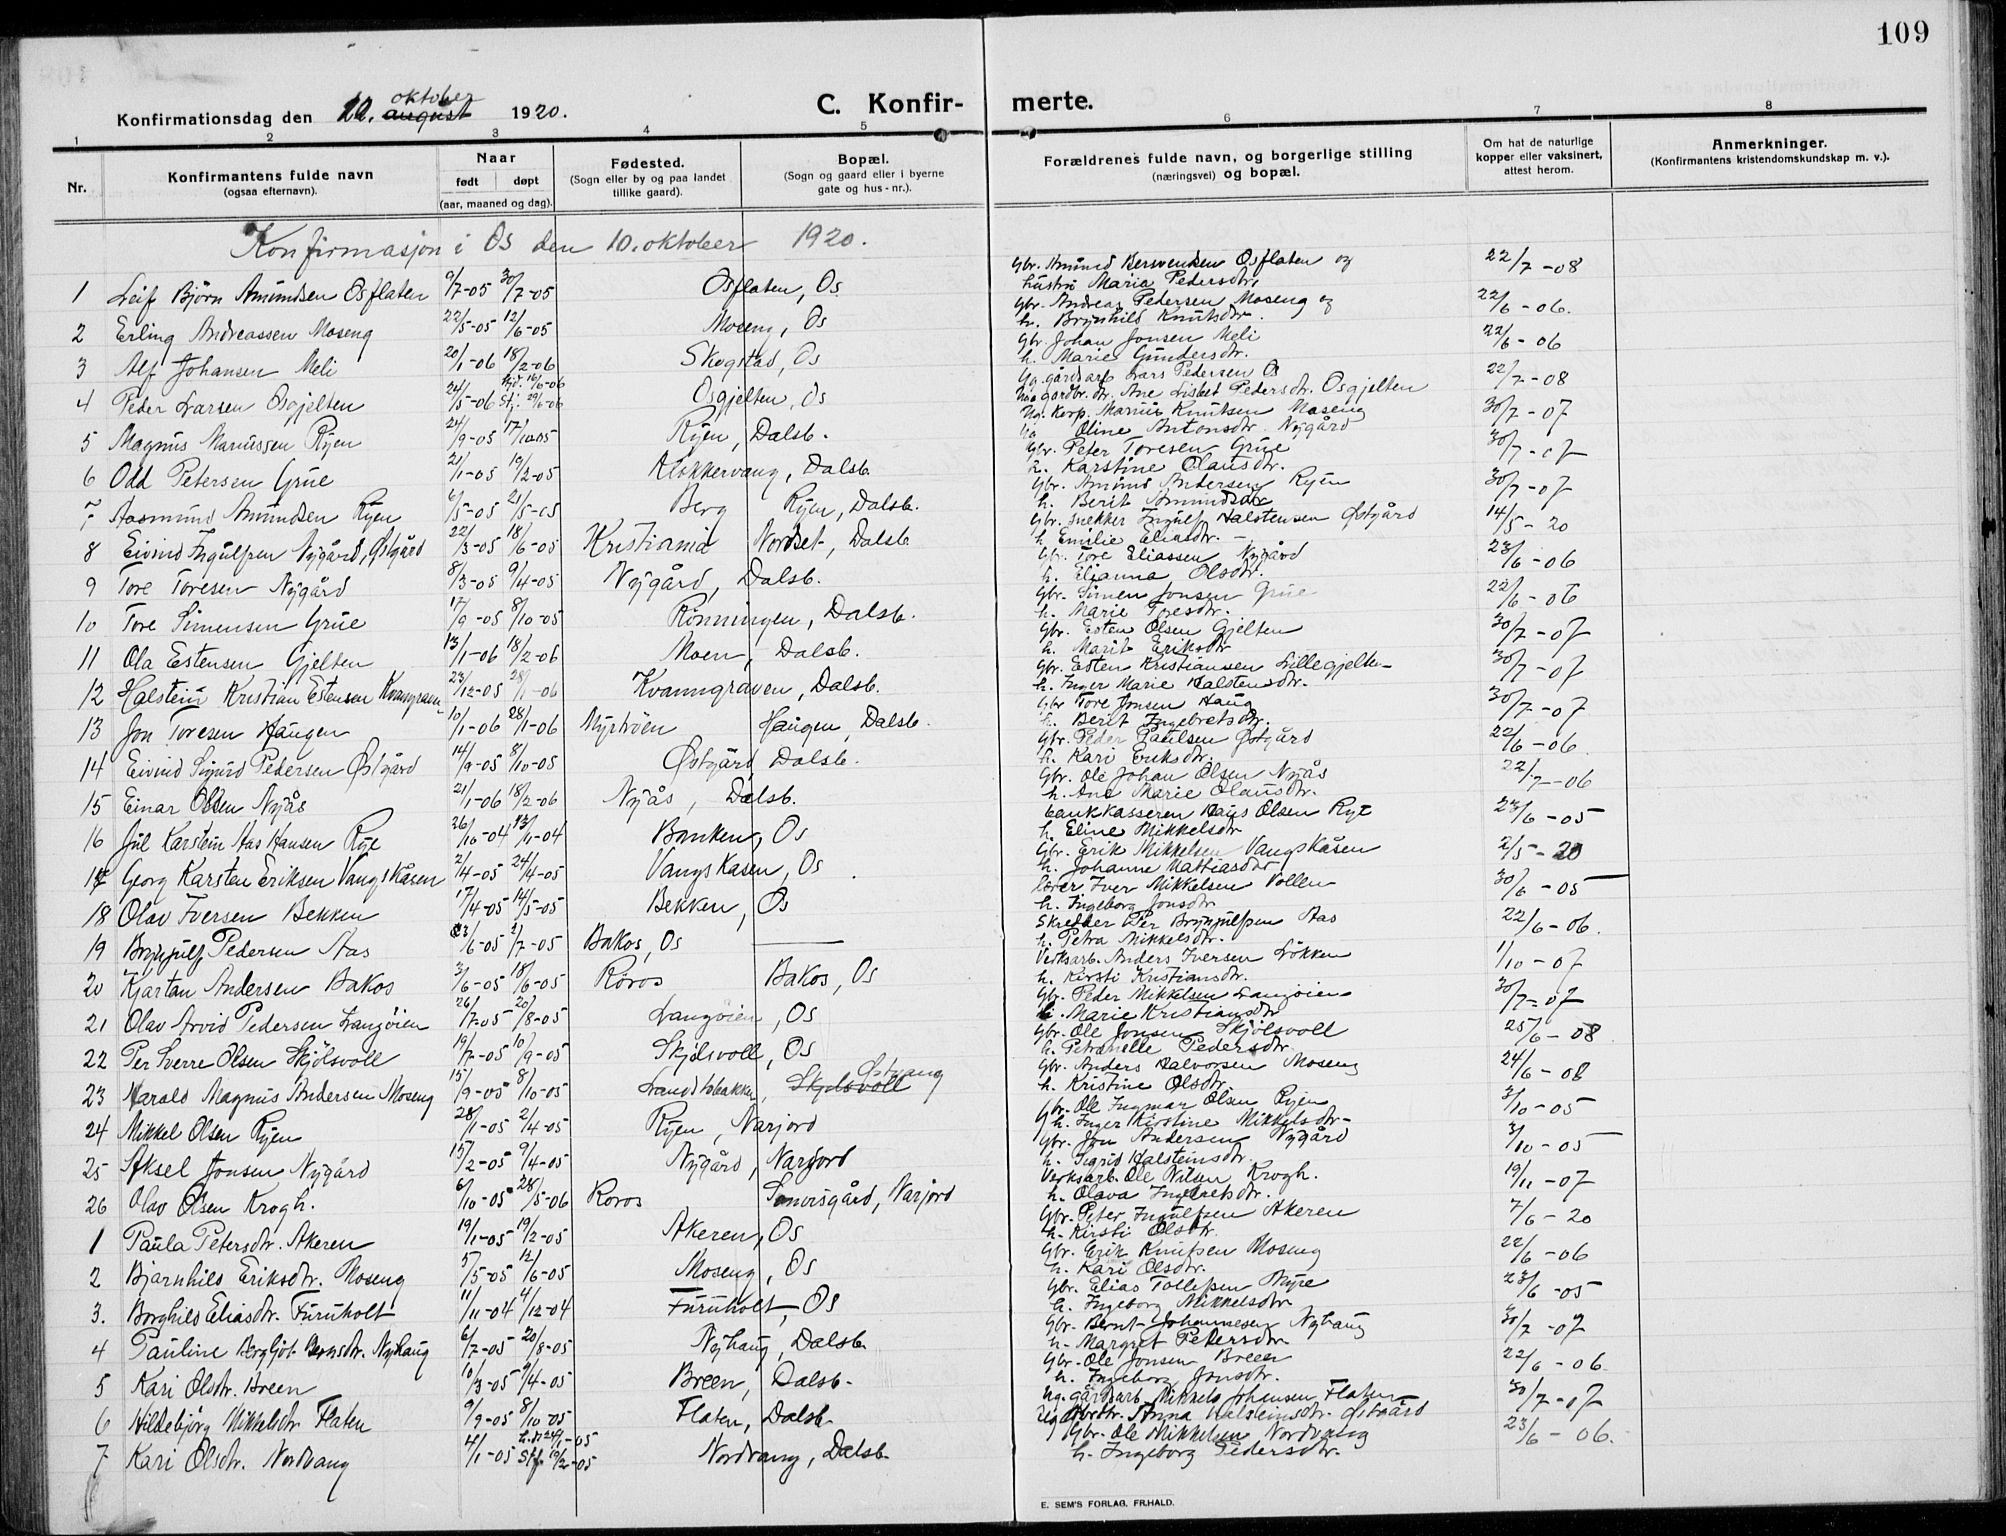 109
Konfirmationsdag den 10. oktober august 1920.
C. Konfir- merte.
1 2 3 4 5 6 7 8
Nr.
Konfirmantens fulde navn
(ogsaa efternavn).
Naar
født døpt
(aar, maaned og dag).
Fødested.
(Sogn eller by og paa landet
tillike gaard).
Bopæl.
(Sogn og gaard eller i byerne
gate og hus-nr.).
Forældrenes fulde navn, og borgerlige stilling
(næringsvei) og bopæl.
Om hat de naturlige
kopper eller vaksinert,
attest herom.
Anmerkninger.
(Konfirmantens kristendomskundskap m. v.).
Konfirmasjon i Os den 10. oktober 1920.
1 Leif Björn Amundsen Osflaten 9/7-05 30/7-05 Osflaten, Os Gbr. Amund Bersvendsen Osflaten og 22/7-08
hustru Maria Pedersdtr.
2 Erling Andreassen Moseng 22/5-05 12/6-05 Moseng, Os Gbr. Andreas Pedersen Moseng og 22/6-06.
h. Brynhild Knutsdtr.
3 Alf Johansen Meli 20/1-06 18/2-06 Skogstad, Os Gbr. Johan Jonsen Meli 22/6-06
h. Marie Gundersdtr.
4 Peder Larsen Osgjelten 24/5-06 hjd. 16/6-06 Stf. 29/6-06 Osgjelten, Os Ug. gårdsarb Lars Pedersen Os 22/7-08
gardbr. dr. Ane Lisbet Pedersdtr. Osgjelten
5 Magnus Mariussen Ryen 24/9-05 17/10-05 Ryen, Dalsb. Ug. korp. Marius Knutsen Moseng 30/7-07
Oline Antonsdtr. Nygård
6 Odd Petersen Grue 21/1-05 19/2-05 Klokkervang, Dalsb. Gbr. Peter Toresen Grue 30/7-07
h. Karstine Olausdtr.
7 Aasmund Amundsen Ryen 6/5-05 21/5-05 Berg Ryen, Dalsb. Gbr. Amund Andersen Ryen 30/7-07
h. Berit Amundsdtr
8 Eivind Ingulfsen Nygård, Østgård 22/3-05 18/6-05 Kristiania Nordset, Dalsb Gbr. snekker Ingulf Halstensen Østgård 14/5-20
h Emilie Eliasdtr. -
9 Tore Toresen Nygård 8/3-05 9/4-05 Nygård, Dalsb. Gbr. Tore Eliassen Nygård 23/6-06
h. Elianna Olsdtr.
10 Tore Simensen Grue 17/9-05 8/10-05 Rönningen, Dalsb. Gbr. Simen Jonsen Grue 22/6-06
h. Marie Toresdtr.
11 Ola Estensen Gjelten 13/1-06 18/2-06 Moen, Dalsb. Gbr. Esten Olsen Gjelten 30/7-07
h. Marit Eriksdtr
12 Halstein Kristian Estensen Kvanngraven 23/12-05 28/1-06 Kvanngraven, Dalsb. Gbr. Esten Kristiansen Lillegjelten 30/7-07
h. Inger Marie Halstensdtr.
13 Jon Toresen Haugen 10/1-06 28/1-06 Myrhöen Haugen, Dalsb. Gbr Tore Jonsen Haug 30/7-07
h. Berit Ingebretsdtr.
14 Eivind Sigurd Pedersen Østgård 14/9-05 8/10-05 Østgård, Dalsb. Gbr. Peder Paulsen Østgård 22/6-06
h. Kari Eriksdtr.
15 Einar Olsen Nyås 21/1-06 18/2-06 Nyås, Dalsb. Gbr. Ole Johan Olsen Nyås 22/7-06
h. Ane Marie Olausdtr.
16 Jul Karstein Aas Hansen Rye 26/10-04 13/11-04 Banken, Os bankkasserer Hans Olsen Rye 23/6-05
h. Eline Mikkelsdtr
17 Georg Karsten Eriksen Vangskåsen 2/4-05 24/4-05 Vangskåsen, Os Gbr. Erik Mikkelsen Vangskåsen 2/5-20
h. Johanne Mattiasdtr
18 Olav Iversen Bekken 17/4-05 14/5-05 Bekken, Os Lærer Iver Mikkelsen Vollen 30/6-05
h. Ingeborg Jonsdtr
19 Brynjulf Pedersen Aas 23/6-05 2/7-05 Bakos, Os — Skredder Per Brynjulfsen Aas 22/6-06.
h. Petra Mikkelsdtr.
20 Kjartan Andersen Bakos 3/6-05 18/6-05 Röros Bakos, Os Verksarb. Anders Iversen Løkken 1/10-07
h. Kirsti Kristiansdtr.
21 Olav Arvid Pedersen Langöien 26/7-05 20/8-05 Langöien, Os Gbr. Peder Mikkelsen Langöien 30/7-07
h. Marie Kristiansdtr
22 Per Sverre Olsen Skjölsvoll 19/7-05 10/9-05 Skjölsvoll, Os Gbr. Ole Jonsen Skjölsvoll 25/6-08
h. Petronelle Pedersdtr.
23 Harald Magnus Andersen Moseng 15/9-05 8/10-05 Sandtrøbakken, Skjolsvoll Østvang Gbr. Anders Halvorsen Moseng 24/6-08
h. Kristine Olsdtr.
24 Mikkel Olsen Ryen 28/1-05 2/4-05 Ryen, Narjord Gbr. Ole Ingmar Olsen Ryen 3/10-05
h. Inger Kirstine Mikkelsdtr-
25 Aksel Jonsen Nygård 15/2-05 9/4-05 Nygård, Narjord Gbr. Jon Andersen Nygård 3/10-05
h. Sigrid Halsteinsdtr.
26 Olav Olsen Krogh. 6/10-05 28/5-06 Röros Simonsgård, Narjord Verksarb. Ole Nilsen Krogh. 19/11-07
h. Olava Ingebretsdtr.
1 Paula Petersdtr. Akeren 19/1-05 19/2-05 Akeren, Os Gbr. Peter Ingulfsen Akeren 7/6-20
h. Kirsti Olsdtr
2 Bjarnhild Eriksdtr. Moseng 5/5-05 12/6-05 Moseng, Os Gbr. Erik Knutsen Moseng 22/6-06
h. Kari Olsdtr.
3. Borghild Eliasdtr. Furuholt 11/11-04 4/12-04 Furuholt, Os Gbr. Elias Tollefsen Myre 23/6-05
h. Ingeborg Mikkelsdtr
4 Pauline Bergljot Berntsdtr. Nyhaug 6/7-05 20/8-05 Nyhaug, Dalsb. Gbr. Bernt Johannesen Nyhaug 30/7-07
h. Margret Pedersdtr.
5 Kari Olsdtr. Breen 10/3-05 9/4-05 Breen, Dalsb. Gbr. Ole Jonsen Breen 22/6-06.
h. Ingeborg Jonsdtr.
6 Hildebjörg Mikkelsdtr Flaten 9/9-05 8/10-05 Flaten, Dalsb. Ug. gårdsarb. Mikkel Johansen Flaten 30/7-07
ug Gbrdtr. Anna Halsteinsdtr. Østgård
7 Kari Olsdtr. Nordvang 4/1-05 h.d. 24/1-05 Stf. 19/2-05 Nordvang, Dalsb. Gbr. Ole Mikkelsen Nordvang 23/6-06.
h. Ingeborg Pedersdtr.
E. SEM'S FORLAG, FR.HALD.